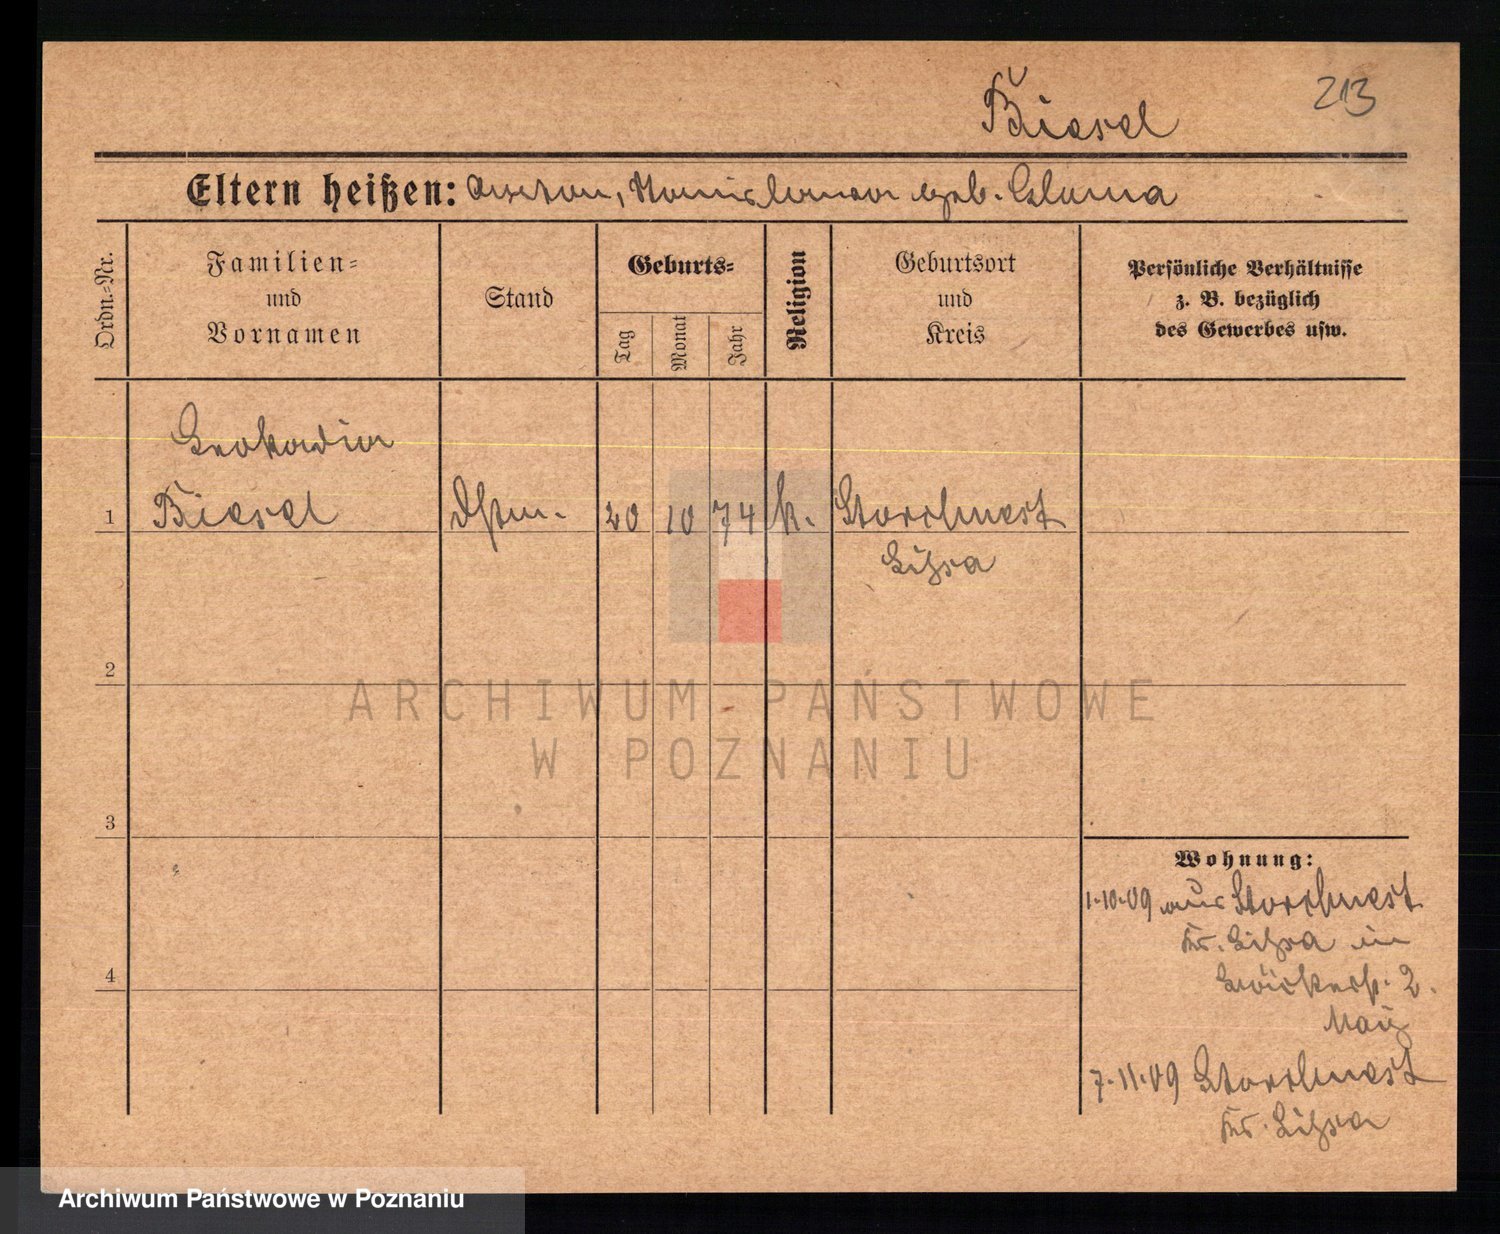 213
Biesel
Eltern heißen: Anton, Stanislawa geb. Gluma
Ordn.-Nr.
Familien-
und
Vornamen
Stand
Geburts-
Tag
Monat
Jahr
Religion
Geburtsort
und
Kreis
Persönliche Verhältnisse
z. B. bezüglich
des Gewerbes usw.
Leokadia
1 Biesel 20 10 74 k. Storchnest
Lissa
2
ARCHIWUM PAŃSTWOWE
W POZNANIU
3
4
Wohnung:
1.10.09 aus Storchnest
Kr. Lissa in
2.
7.11.09 Storchnest
Kr. Lissa
Archiwum Państwowe w Poznaniu